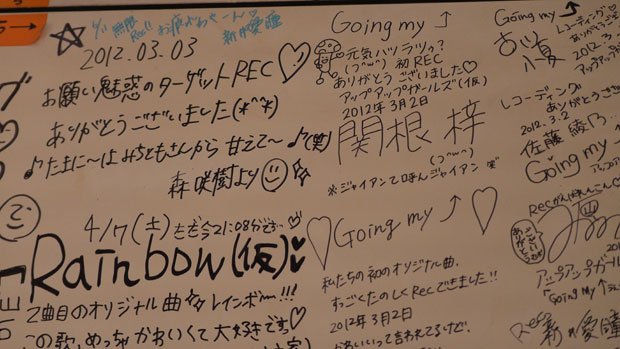 4/11 無限
Rec!!
2012.03.03
お願い魅惑のターゲットREC
ありがとうございました(*^^*)
♪たまに〜はみちともさんから 甘えて〜♪(笑)
森咲樹より
4/7(土)ただ今21:08分です。
Rainbow(仮)
2曲目のオリジナル曲☆レインボー!!!
この歌、めっちゃかわいくて大好きです
Going my ↑
元気バリラりっ?
(つ'ω') 初REC
ありがとうございました♡
アップアップガールズ(仮)
2012年3月2日
関根 梓
(つ'ω')
※ジャイアンてほんジャイアン
Going my ↑
私たちの初のオリジナル曲、
すっごくたのしくRecできました!!
2012年3月2日
かわいいって言われてるけど、
Going my ↑
レコーディング
ありがとうござ
2012.3.
アップアップ
レコーディング
ありがとうござ
2012.3.2
佐藤 綾乃
Going my
ありがとう
アップアップガール
"Going my ↑
Rec 新井愛瞳